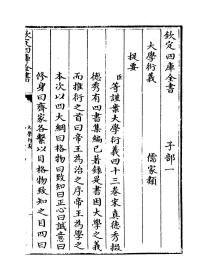 欽定四庫全書
子部一
大學衍義
儒家類
提要
臣等謹案大學衍義四十三卷宋真德秀撰
德秀有四書集編已著録是書因大學之義
而推衍之首曰帝王為治之序帝王為學之
本次以四大綱曰格物曰致知曰正心曰誠意曰
修身曰齊家各繫以目格物致知之目四曰
欽定四庫全書
大學衍義